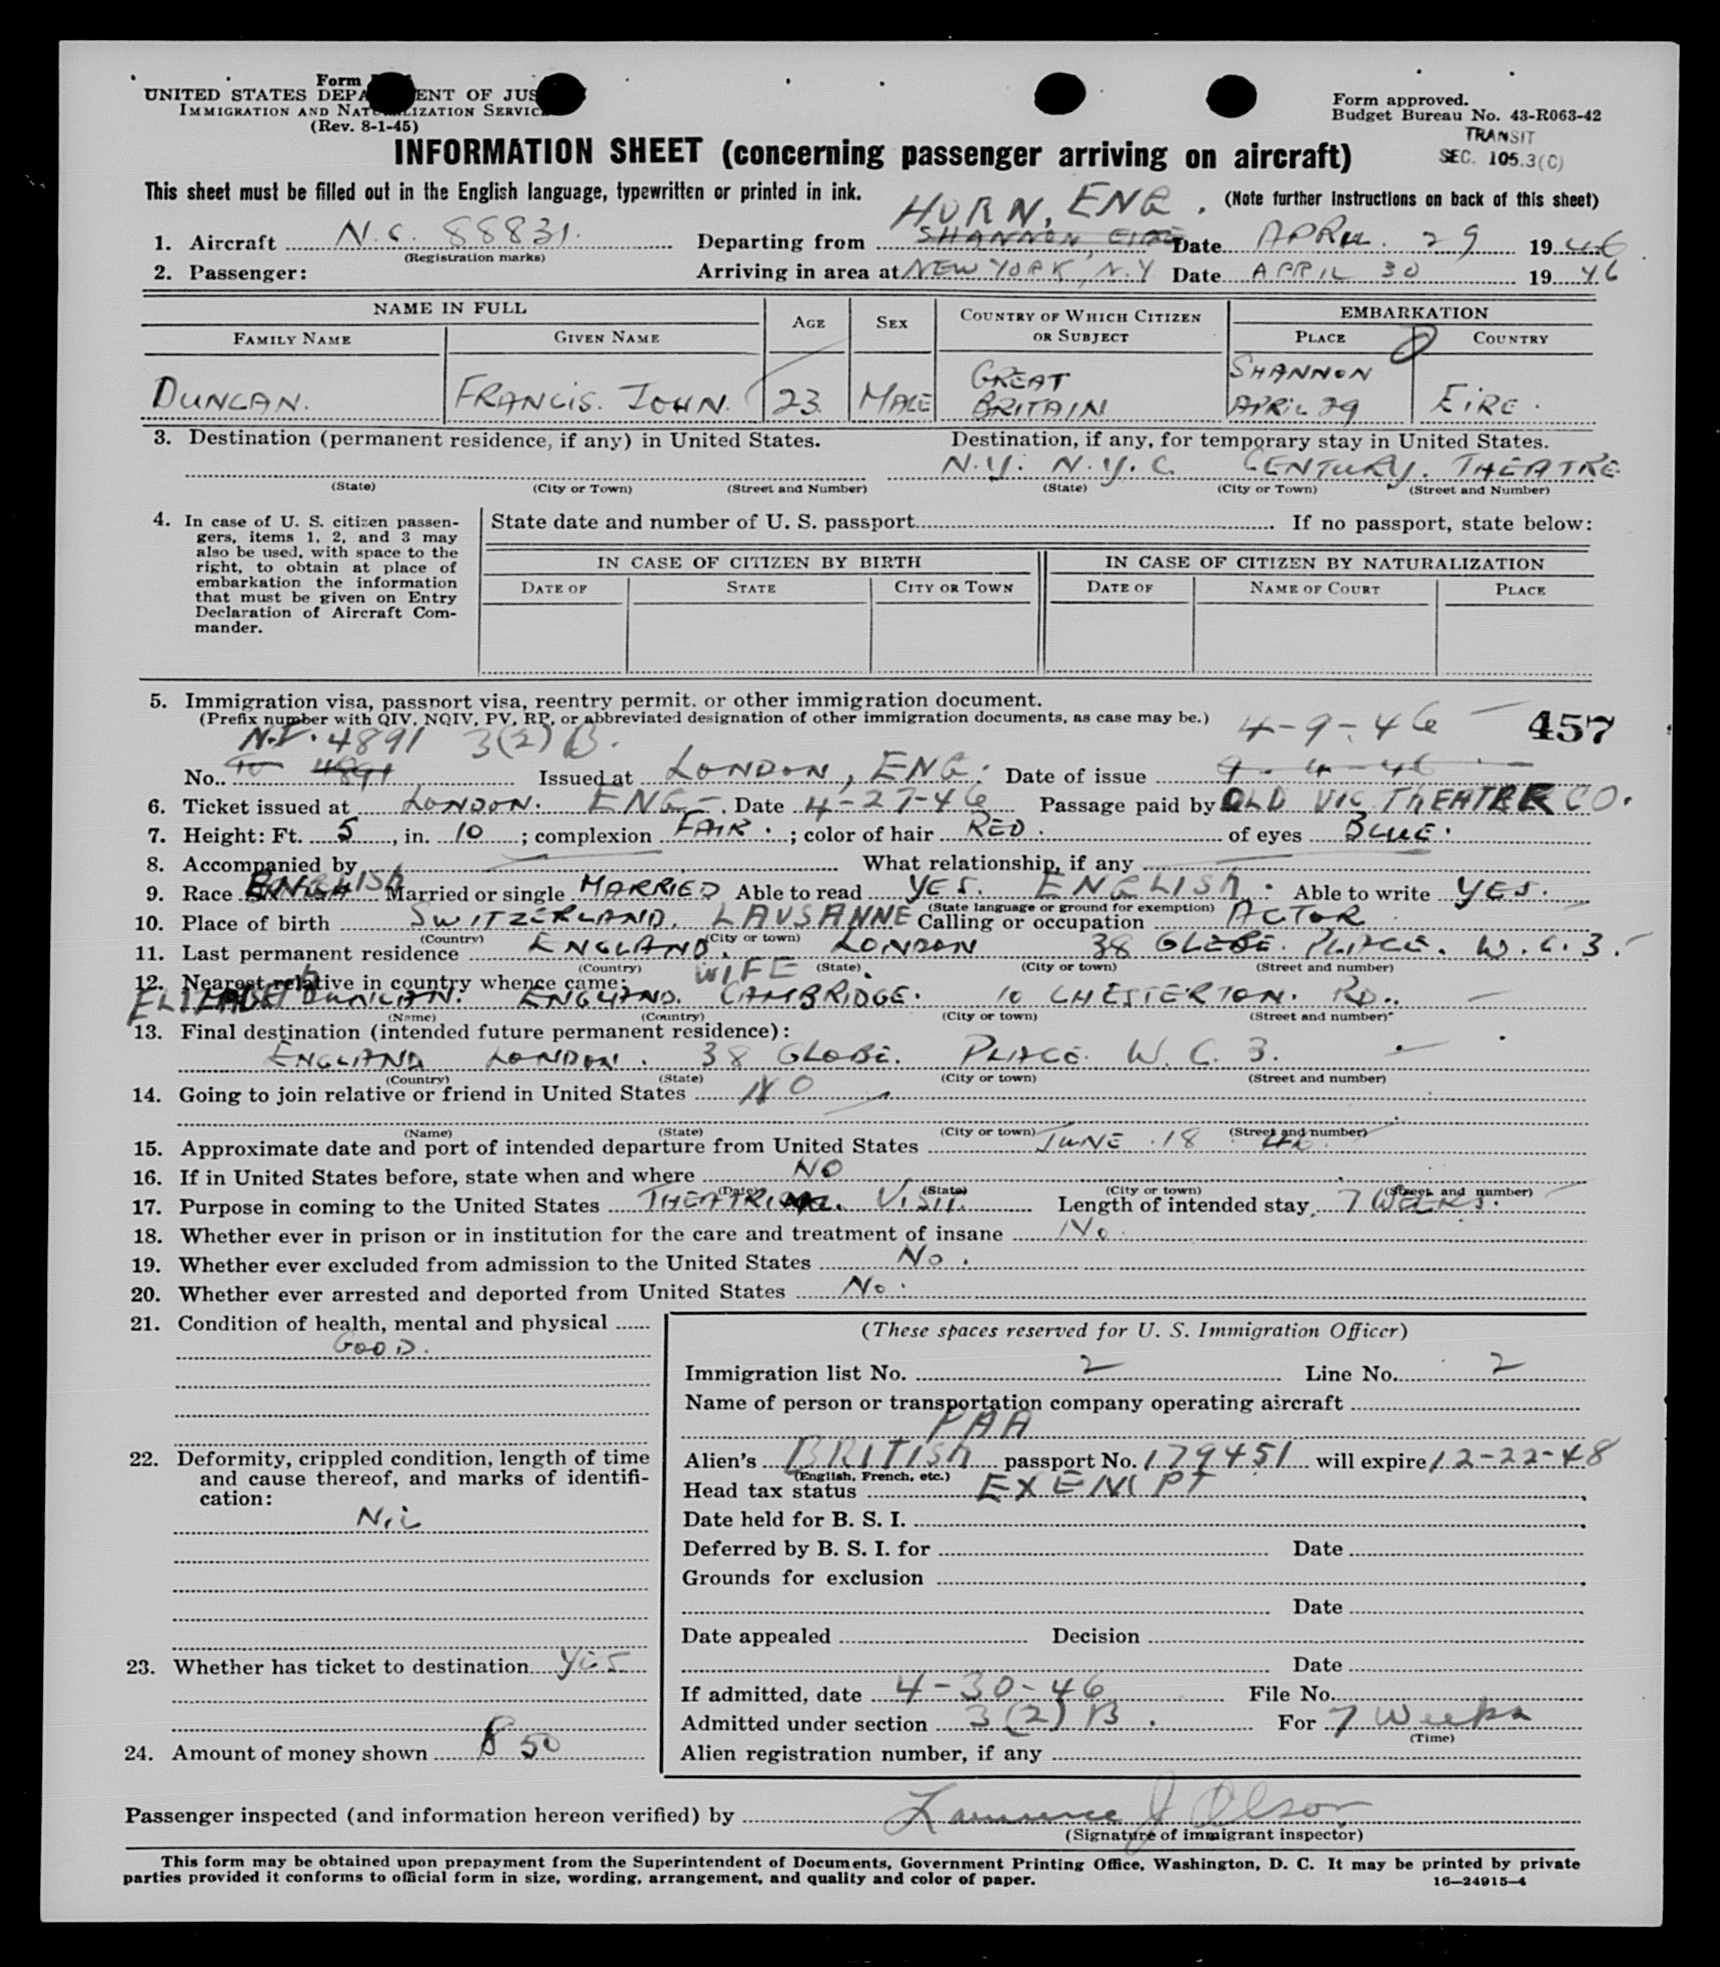 Form
UNITED STATES DEPA ENT OF JUS
IMMIGRATION AND NAT LIZATION SERVIC
(Rev. 8-1-45)
Form approved.
Budget Bureau No. 43-R063-42
TRANSIT
SEC. 105.3(C)
INFORMATION SHEET (concerning passenger arriving on aircraft)
This sheet must be filled out in the English language, typewritten or printed in ink. (Note further instructions on back of this sheet)
HURN, ENG.
1. Aircraft N.C. 88831. Departing from SHANNON EIRE Date APRIL 29 1946
(Registration marks)
2. Passenger: Arriving in area at NEW YORK, N.Y Date APRIL 30 1946
NAME IN FULL AGE SEX COUNTRY OF WHICH CITIZEN OR SUBJECT EMBARKATION
FAMILY NAME GIVEN NAME PLACE COUNTRY
DUNCAN. FRANCIS. JOHN. 23 MALE GREAT BRITAIN SHANNON APRIL 29 EIRE.
3. Destination (permanent residence, if any) in United States. Destination, if any, for temporary stay in United States.
N.Y. N.Y.C. CENTURY. THEATRE
(State) (City or Town) (Street and Number) (State) (City or Town) (Street and Number)
4. In case of U. S. citizen passen-
gers, items 1, 2, and 3 may
also be used, with space to the
right, to obtain at place of
embarkation the information
that must be given on Entry
Declaration of Aircraft Com-
mander.
State date and number of U. S. passport If no passport, state below:
IN CASE OF CITIZEN BY BIRTH IN CASE OF CITIZEN BY NATURALIZATION
DATE OF STATE CITY OR TOWN DATE OF NAME OF COURT PLACE
5. Immigration visa, passport visa, reentry permit, or other immigration document.
(Prefix number with QIV, NQIV, PV, RP, or abbreviated designation of other immigration documents, as case may be.) 4-9-46 457
N.I. 4891 3(2)B.
No. 4891 Issued at LONDON, ENG. Date of issue 9-4-46
6. Ticket issued at LONDON. ENG Date 4-27-46 Passage paid by OLD VIC THEATER CO.
7. Height: Ft. 5, in. 10; complexion FAIR.; color of hair RED. of eyes BLUE.
8. Accompanied by What relationship, if any
9. Race ENGLISH Married or single MARRIED Able to read YES. ENGLISH. Able to write YES.
(State language or ground for exemption)
10. Place of birth SWITZERLAND. LAUSANNE Calling or occupation ACTOR
(Country) (City or town)
11. Last permanent residence ENGLAND. LONDON 38 GLEBE. PLACE. W.C.3.
(Country) (State) (City or town) (Street and number)
12. Nearest relative in country whence came: WIFE
ELIZABETH DUNCAN. ENGLAND. CAMBRIDGE. 10 CHESTERTON. RD.
(Name) (Country) (City or town) (Street and number)
13. Final destination (intended future permanent residence):
ENGLAND LONDON. 38 GLOBE. PLACE. W.C.3.
(Country) (State) (City or town) (Street and number)
14. Going to join relative or friend in United States NO
(Name) (State) (City or town) (Street and number)
15. Approximate date and port of intended departure from United States JUNE 18 46.
16. If in United States before, state when and where NO
(Date) (State) (City or town) (Street and number)
17. Purpose in coming to the United States THEATRICAL. VISIT. Length of intended stay 7 WEEKS.
18. Whether ever in prison or in institution for the care and treatment of insane No.
19. Whether ever excluded from admission to the United States No.
20. Whether ever arrested and deported from United States No.
21. Condition of health, mental and physical
GOOD.
22. Deformity, crippled condition, length of time
and cause thereof, and marks of identifi-
cation:
Nil
23. Whether has ticket to destination YES
24. Amount of money shown $ 50
(These spaces reserved for U. S. Immigration Officer)
Immigration list No. 2 Line No. 2
Name of person or transportation company operating aircraft
PAA
Alien's BRITISH passport No. 179451 will expire 12-22-48
(English, French, etc.)
Head tax status EXEMPT
Date held for B. S. I.
Deferred by B. S. I. for Date
Grounds for exclusion
Date
Date appealed Decision
Date
If admitted, date 4-30-46 File No.
Admitted under section 3(2)B. For 7 Weeks
(Time)
Alien registration number, if any
Passenger inspected (and information hereon verified) by Lawrence J Olson
(Signature of immigrant inspector)
This form may be obtained upon prepayment from the Superintendent of Documents, Government Printing Office, Washington, D. C. It may be printed by private
parties provided it conforms to official form in size, wording, arrangement, and quality and color of paper. 16—24915-4